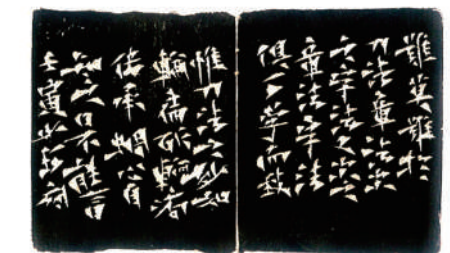 難莫難於
刀法章法次
之字法又次之
章法字法
俱可學而致
惟刀法之妙如
輪扁斫輪痀
僂承蜩心自
知之口不能言
壬寅